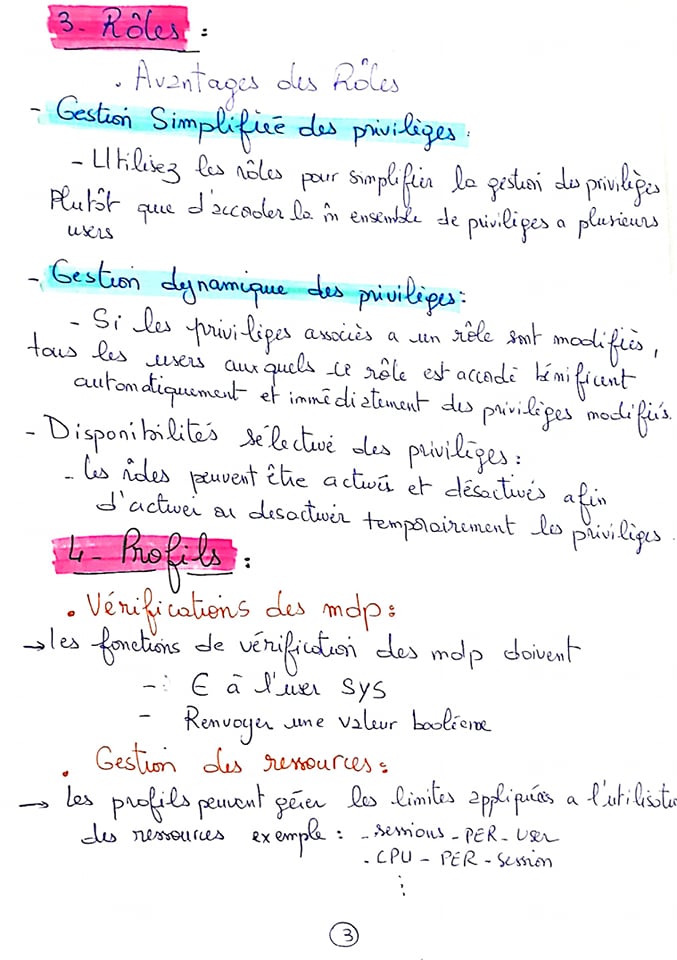 3- Rôles :
. Avantages des Rôles
- Gestion Simplifiée des privilèges :
- Utilisez les rôles pour simplifier la gestion des privilèges
Plutôt que d'accorder la m̂ ensemble de privilèges a plusieurs
users
- Gestion dynamique des privilèges :
- Si les privilèges associés a un rôle sont modifiés,
tous les users auxquels ce rôle est accordé bénificent
automatiquement et immédiatement des privilèges modifiés.
- Disponibilités sélective des privilèges :
- les rôles peuvent être activés et désactivés afin
d'activer ou desactiver temporairement les privilèges.
4- Profils :
. Vérifications des mdp :
→ les fonctions de vérification des mdp doivent
- : ∈ à l'user SYS
- Renvoyer une valeur booléenne
. Gestion des ressources :
→ les profils peuvent gérer les limites appliquées a l'utilisatio
des ressources exemple : - sessions - PER - USER
. CPU - PER - Session
⋮
3